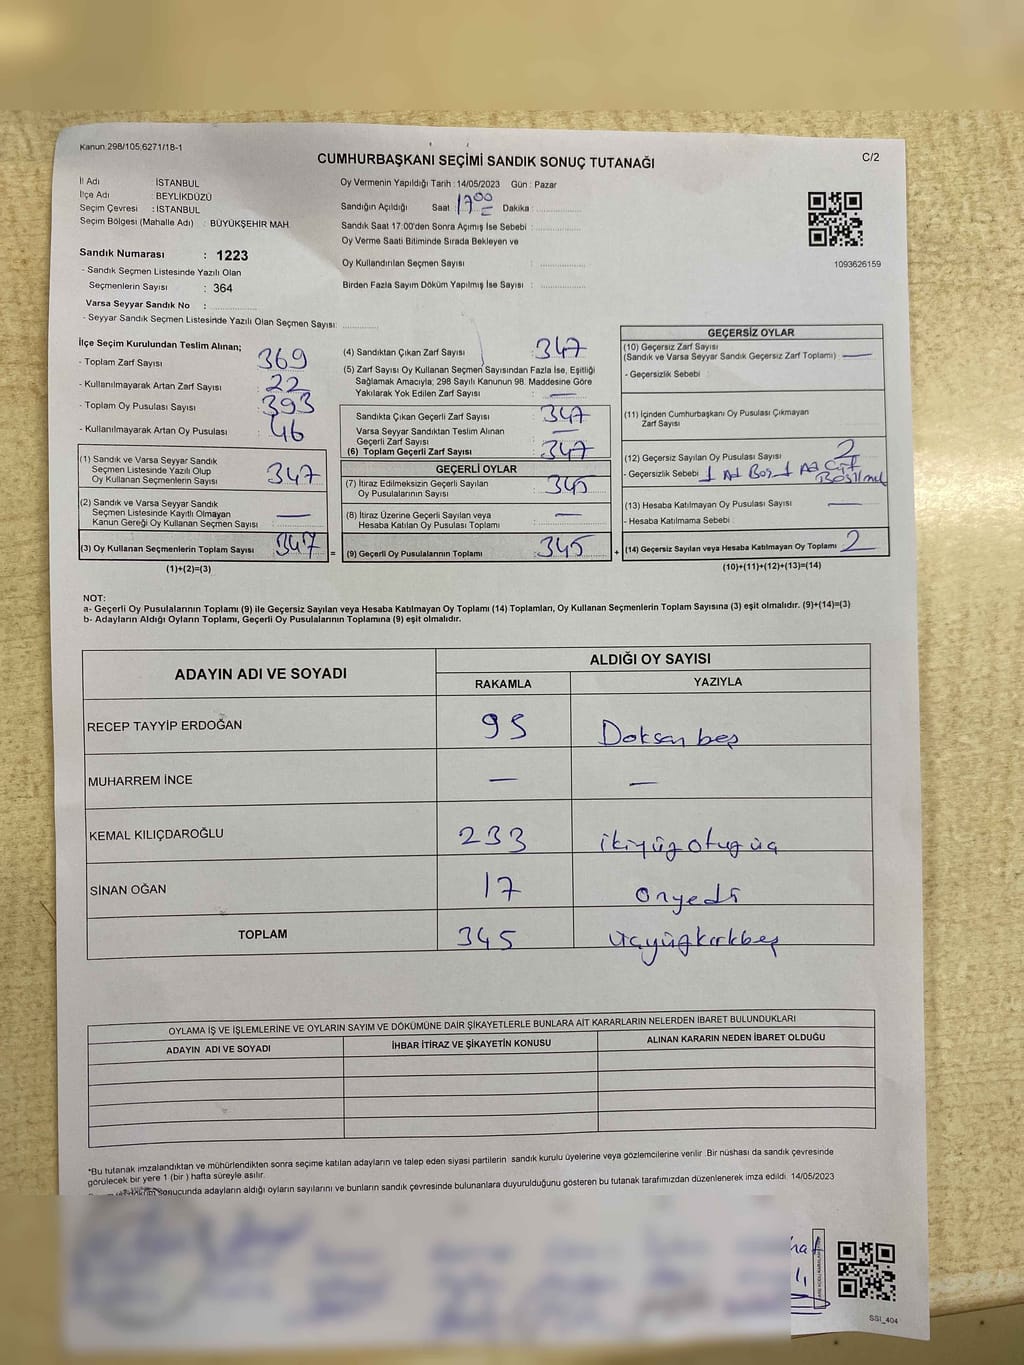 Kanun 298/105;6271/18-1
CUMHURBAŞKANI SEÇİMİ SANDIK SONUÇ TUTANAĞI
C/2
İl Adı İSTANBUL
İlçe Adı : BEYLİKDÜZÜ
Seçim Çevresi : İSTANBUL
Seçim Bölgesi (Mahalle Adı) : BÜYÜKŞEHİR MAH.
Sandık Numarası : 1223
- Sandık Seçmen Listesinde Yazılı Olan
Seçmenlerin Sayısı : 364
Varsa Seyyar Sandık No :
- Seyyar Sandık Seçmen Listesinde Yazılı Olan Seçmen Sayısı:
Oy Vermenin Yapıldığı Tarih : 14/05/2023 Gün : Pazar
Sandığın Açıldığı Saat 17 00 Dakika :
Sandık Saat 17:00'den Sonra Açımış İse Sebebi :
Oy Verme Saati Bitiminde Sırada Bekleyen ve
Oy Kullandırılan Seçmen Sayısı :
Birden Fazla Sayım Döküm Yapılmış İse Sayısı :
1093626159
İlçe Seçim Kurulundan Teslim Alınan;
- Toplam Zarf Sayısı : 369
- Kullanılmayarak Artan Zarf Sayısı : 22
- Toplam Oy Pusulası Sayısı : 393
- Kullanılmayarak Artan Oy Pusulası : 46
(1) Sandık ve Varsa Seyyar Sandık
Seçmen Listesinde Yazılı Olup
Oy Kullanan Seçmenlerin Sayısı : 347
(2) Sandık ve Varsa Seyyar Sandık
Seçmen Listesinde Kayıtlı Olmayan
Kanun Gereği Oy Kullanan Seçmen Sayısı : —
(3) Oy Kullanan Seçmenlerin Toplam Sayısı 347 =
(1)+(2)=(3)
(4) Sandıktan Çıkan Zarf Sayısı : 347
(5) Zarf Sayısı Oy Kullanan Seçmen Sayısından Fazla İse, Eşitliği
Sağlamak Amacıyla; 298 Sayılı Kanunun 98. Maddesine Göre
Yakılarak Yok Edilen Zarf Sayısı : —
Sandıkta Çıkan Geçerli Zarf Sayısı : 347
Varsa Seyyar Sandıktan Teslim Alınan
Geçerli Zarf Sayısı : —
(6) Toplam Geçerli Zarf Sayısı : 347
GEÇERLİ OYLAR
(7) İtiraz Edilmeksizin Geçerli Sayılan
Oy Pusulalarının Sayısı : 345
(8) İtiraz Üzerine Geçerli Sayılan veya
Hesaba Katılan Oy Pusulası Toplamı : —
(9) Geçerli Oy Pusulalarının Toplamı : 345 +
GEÇERSİZ OYLAR
(10) Geçersiz Zarf Sayısı
(Sandık ve Varsa Seyyar Sandık Geçersiz Zarf Toplamı) : —
- Geçersizlik Sebebi :
(11) İçinden Cumhurbaşkanı Oy Pusulası Çıkmayan
Zarf Sayısı :
(12) Geçersiz Sayılan Oy Pusulası Sayısı : 2
- Geçersizlik Sebebi : 1 Ad Boş 1 Ad Çift
(13) Hesaba Katılmayan Oy Pusulası Sayısı : —
- Hesaba Katılmama Sebebi :
(14) Geçersiz Sayılan veya Hesaba Katılmayan Oy Toplamı : 2
(10)+(11)+(12)+(13)=(14)
NOT:
a- Geçerli Oy Pusulalarının Toplamı (9) ile Geçersiz Sayılan veya Hesaba Katılmayan Oy Toplamı (14) Toplamları, Oy Kullanan Seçmenlerin Toplam Sayısına (3) eşit olmalıdır. (9)+(14)=(3)
b- Adayların Aldığı Oyların Toplamı, Geçerli Oy Pusulalarının Toplamına (9) eşit olmalıdır.
ADAYIN ADI VE SOYADI
ALDIĞI OY SAYISI
RAKAMLA YAZIYLA
RECEP TAYYİP ERDOĞAN 95 Doksan beş
MUHARREM İNCE — —
KEMAL KILIÇDAROĞLU 233 ikiyüz otuz üç
SİNAN OĞAN 17 onyedi
TOPLAM 345 üçyüzkırkbeş
OYLAMA İŞ VE İŞLEMLERİNE VE OYLARIN SAYIM VE DÖKÜMÜNE DAİR ŞİKAYETLERLE BUNLARA AİT KARARLARIN NELERDEN İBARET BULUNDUKLARI
ADAYIN ADI VE SOYADI İHBAR İTİRAZ VE ŞİKAYETİN KONUSU ALINAN KARARIN NEDEN İBARET OLDUĞU
*Bu tutanak imzalandıktan ve mühürlendikten sonra seçime katılan adayların ve talep eden siyasi partilerin sandık kurulu üyelerine veya gözlemcilerine verilir. Bir nüshası da sandık çevresinde
görülecek bir yere 1 (bir) hafta süreyle asılır.
sonucunda adayların aldığı oyların sayılarını ve bunların sandık çevresinde bulunanlara duyurulduğunu gösteren bu tutanak tarafımızdan düzenlenerek imza edildi. 14/05/2023
SSI_404